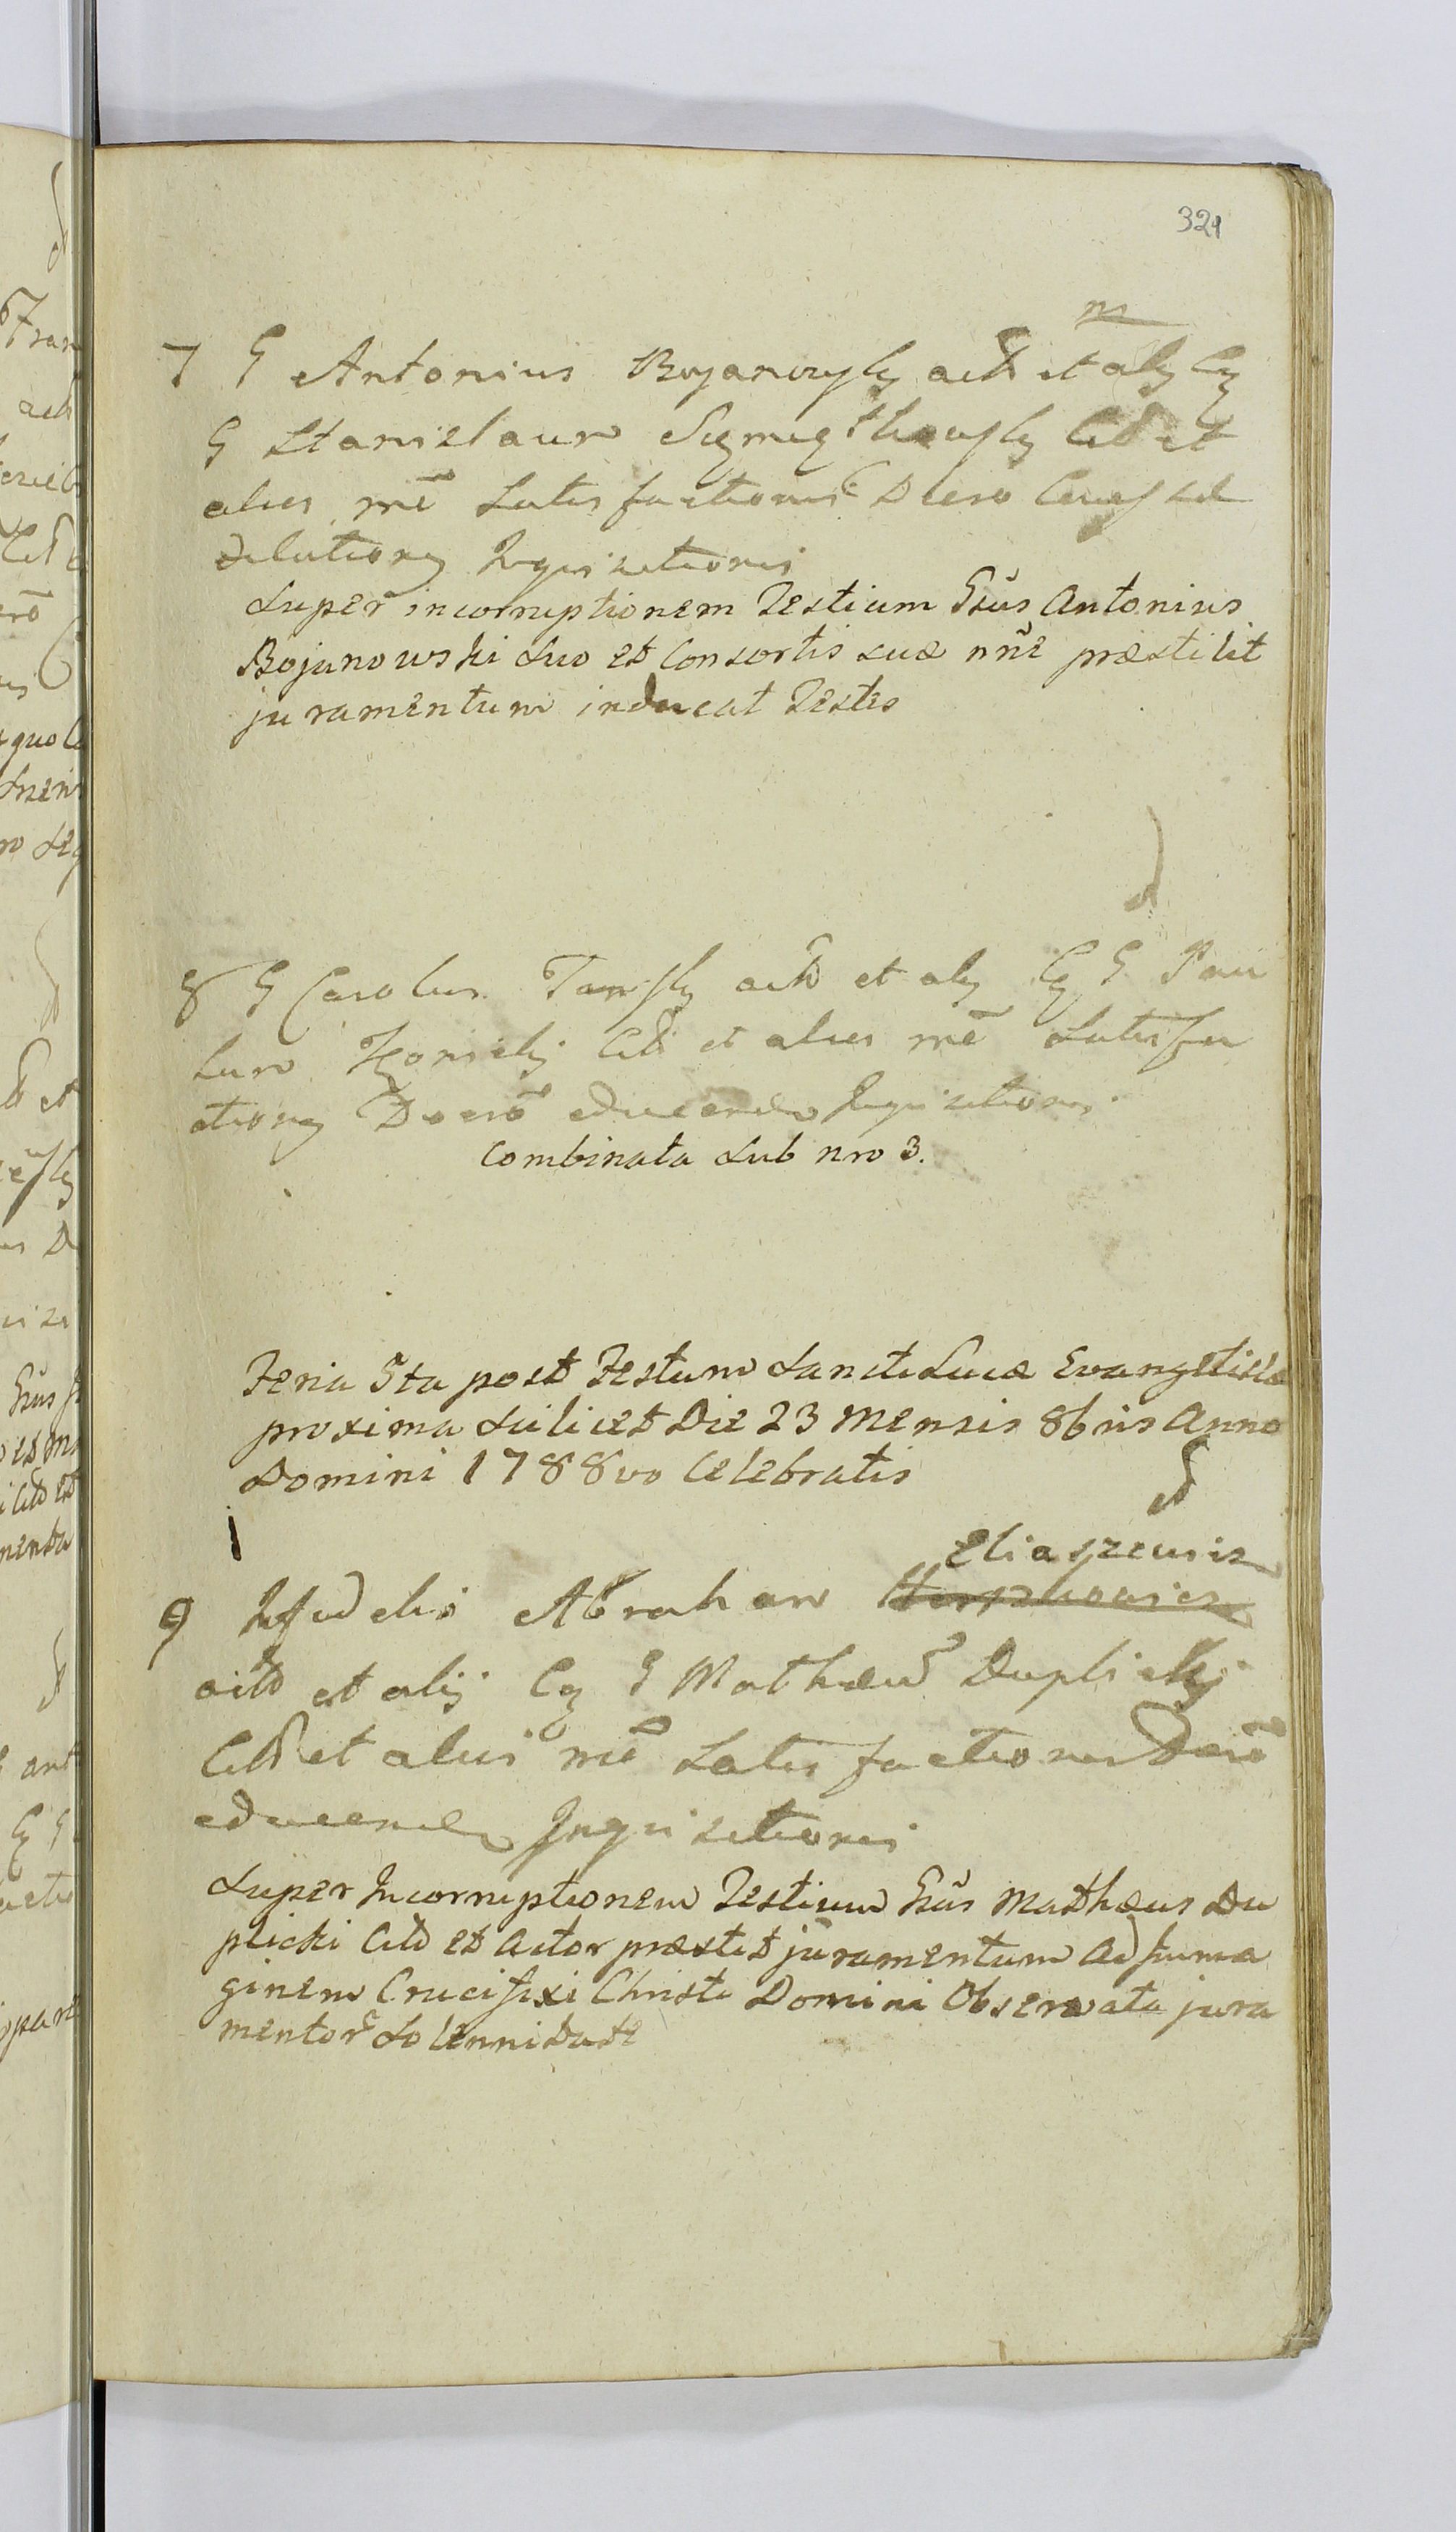 321
m
7 G Antonius Boyanowsky actr et alij Cq
G Stanislaum Citt et
alios rnē Satisfactionis Decro
dilationis Inquisitionis
Super incorruptionem Testium Gsūs Antonius
Bojanowski Suo et Consortis suæ nñe præstitit
juramentum inducat Testes
8 G Carolus Tarsky actr et alij Cq G Pau
lum Citt et alios rnē Satisfa
ctionis Decrō educendæ Inquisitionis
Combinata Sub nro 3.
Feria 5ta post Festum Sancti Lucæ Evangelistæ
proxima Scilicet Die 23 Mensis 8bris Anno
Domini 1788vo Celebratis
Eliaszewicz
9 Infidelis Abraham
actr et alij Cq G Mathæum Duplicky
Citt et alios rnē Satisfactionis Decrō
educendæ Inquisitionis
Super Incorruptionem Testium Gsūs Mathæus Du
plicki Citt et Actor præstet juramentum Ad Juma
ginem Crucifixi Christi Domini Observata jura
mentor Solennitate